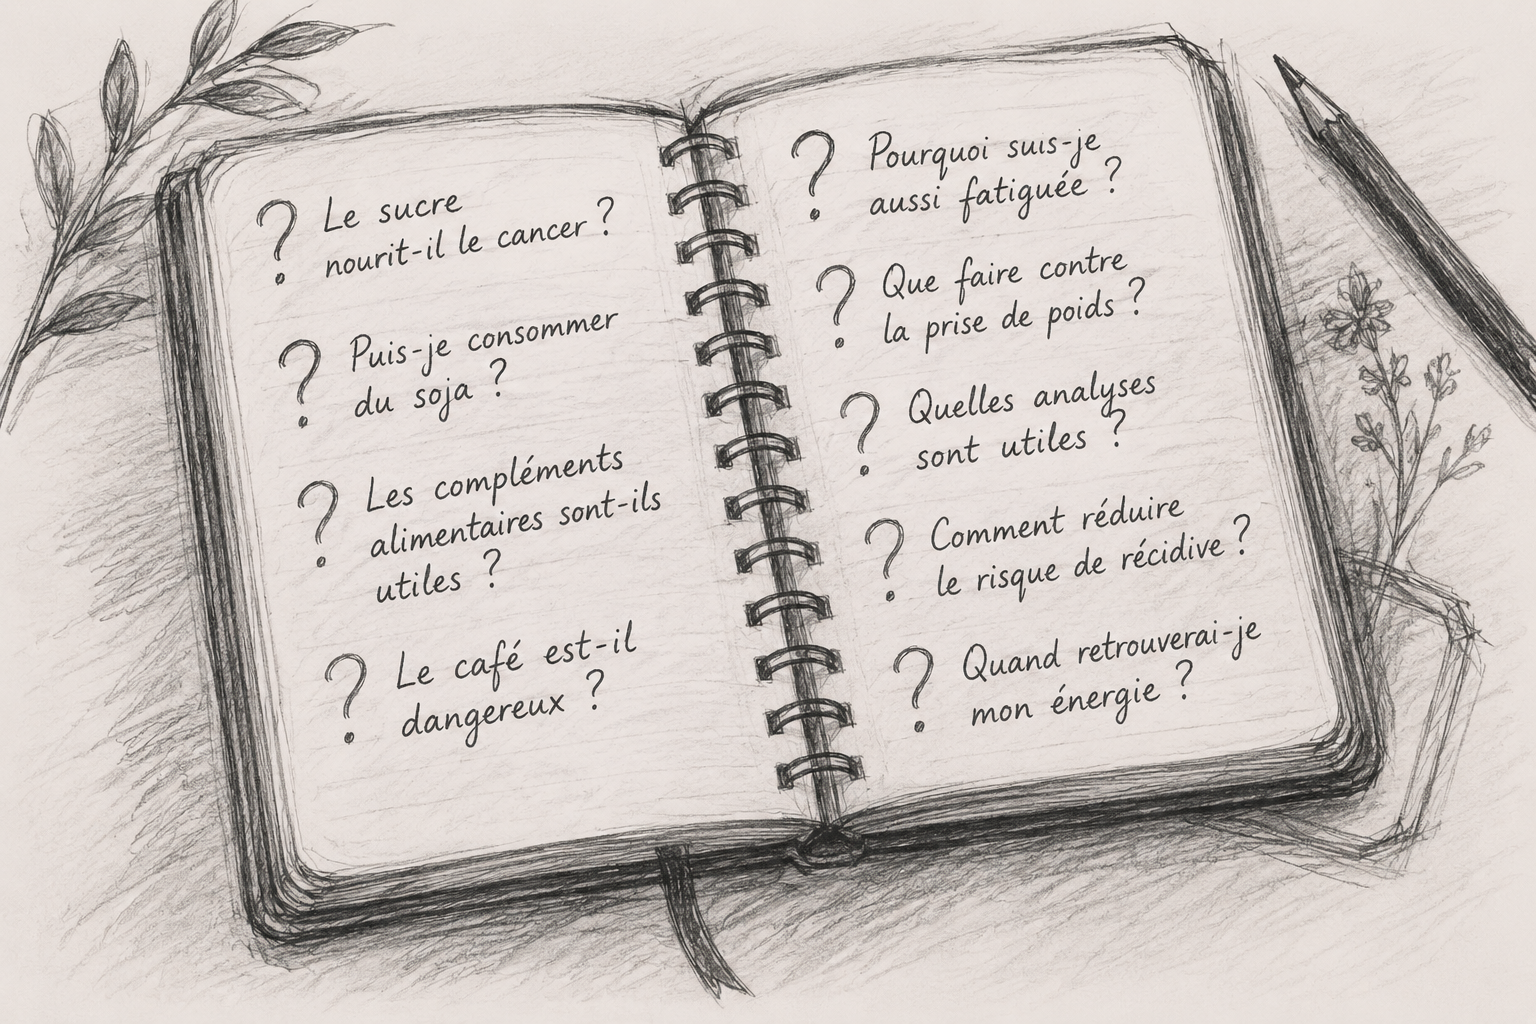 ? Le sucre
nourit-il le cancer ?
? Puis-je consommer
du soja ?
? Les compléments
alimentaires sont-ils
utiles ?
? Le café est-il
dangereux ?
? Pourquoi suis-je
aussi fatiguée ?
? Que faire contre
la prise de poids ?
? Quelles analyses
sont utiles ?
? Comment réduire
le risque de récidive ?
? Quand retrouverai-je
mon énergie ?